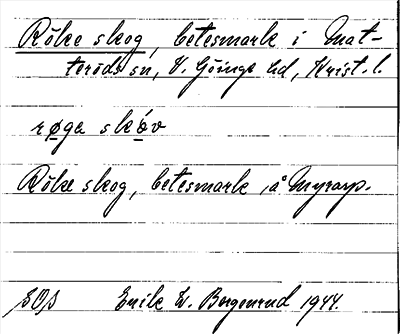 Röke skog, betesmark i Mat-
teröds sn, V. Göinge hd, Krist. l.
røga skáv
Röke skog, betesmark, å Myrarp.
SOS Erik W. Bergenrud 1944.